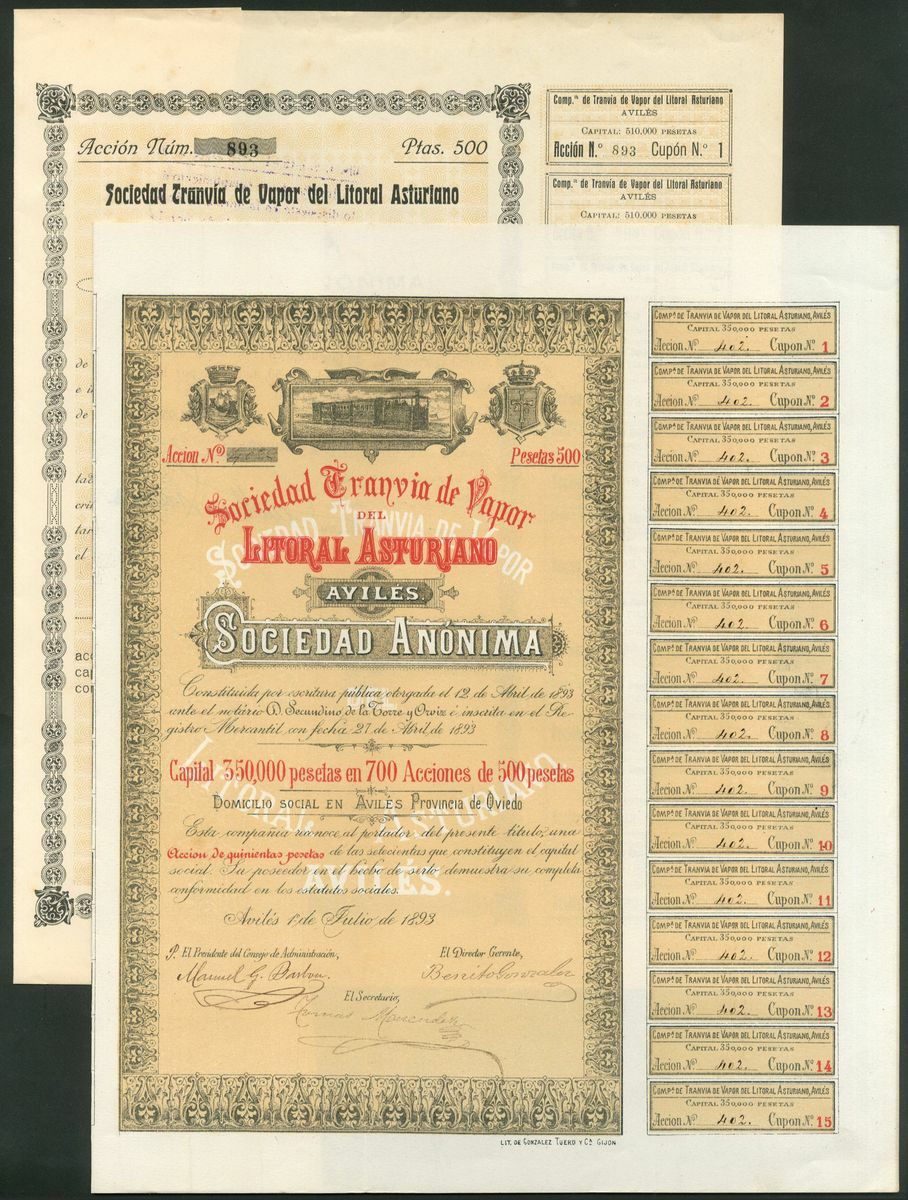 Acción Núm. 893 Ptas. 500
Sociedad Tranvía de Vapor del Litoral Asturiano
Comp.ª de Tranvía de Vapor del Litoral Asturiano
AVILÉS
CAPITAL: 510.000 PESETAS
Acción N.º 893 Cupón N.º 1
Comp.ª de Tranvía de Vapor del Litoral Asturiano
AVILÉS
CAPITAL: 510.000 PESETAS
de
e i
de
el
acc
cap
con
Accion Nº Pesetas 500
Sociedad Tranvia de Vapor
DEL
LITORAL ASTURIANO
AVILÉS.
SOCIEDAD ANÓNIMA
SOCIEDAD TRANVIA DE VAPOR
DEL
LITORAL ASTURIANO
AVILÉS.
Constituida por escritura pública otorgada el 12 de Abril de 1893
ante el notário D. Secundino de la Torre y Orviz é inscrita en el Re-
gistro Mercantil con fecha 27 de Abril de 1893
Capital 350,000 pesetas en 700 Acciones de 500 pesetas
DOMICILIO SOCIAL EN AVILÉS Provincia de Oviedo
Esta compañia reconoce al portador del presente titulo, una
Accion de quinientas pesetas de las setecientas que constituyen el capital
social. Su poseedor en el hecho de serlo, demuestra su completa
conformidad en los estatutos sociales.
Avilés 1º de Julio de 1893
P. El Presidente del Consejo de Administración, El Director Gerente,
Manuel G. Barbon Benito Gonzalez
El Secretario,
Tomas Menendez
LIT. DE GONZALEZ TUERO Y Cª. GIJON
COMPª DE TRANVIA DE VAPOR DEL LITORAL ASTURIANO, AVILÉS
CAPITAL 350,000 PESETAS
Accion Nº 402. Cupon Nº 1
COMPª DE TRANVIA DE VAPOR DEL LITORAL ASTURIANO, AVILÉS
CAPITAL 350,000 PESETAS
Accion Nº 402. Cupon Nº 2
COMPª DE TRANVIA DE VAPOR DEL LITORAL ASTURIANO, AVILÉS
CAPITAL 350,000 PESETAS
Accion Nº 402. Cupon Nº 3
COMPª DE TRANVIA DE VAPOR DEL LITORAL ASTURIANO, AVILÉS
CAPITAL 350,000 PESETAS
Accion Nº 402. Cupon Nº 4
COMPª DE TRANVIA DE VAPOR DEL LITORAL ASTURIANO, AVILÉS
CAPITAL 350,000 PESETAS
Accion Nº 402. Cupon Nº 5
COMPª DE TRANVIA DE VAPOR DEL LITORAL ASTURIANO, AVILÉS
CAPITAL 350,000 PESETAS
Accion Nº 402. Cupon Nº 6
COMPª DE TRANVIA DE VAPOR DEL LITORAL ASTURIANO, AVILÉS
CAPITAL 350,000 PESETAS
Accion Nº 402. Cupon Nº 7
COMPª DE TRANVIA DE VAPOR DEL LITORAL ASTURIANO, AVILÉS
CAPITAL 350,000 PESETAS
Accion Nº 402. Cupon Nº 8
COMPª DE TRANVIA DE VAPOR DEL LITORAL ASTURIANO, AVILÉS
CAPITAL 350,000 PESETAS
Accion Nº 402. Cupon Nº 9
COMPª DE TRANVIA DE VAPOR DEL LITORAL ASTURIANO, AVILÉS
CAPITAL 350,000 PESETAS
Accion Nº 402. Cupon Nº 10
COMPª DE TRANVIA DE VAPOR DEL LITORAL ASTURIANO, AVILÉS
CAPITAL 350,000 PESETAS
Accion Nº 402. Cupon Nº 11
COMPª DE TRANVIA DE VAPOR DEL LITORAL ASTURIANO, AVILÉS
CAPITAL 350,000 PESETAS
Accion Nº 402. Cupon Nº 12
COMPª DE TRANVIA DE VAPOR DEL LITORAL ASTURIANO, AVILÉS
CAPITAL 350,000 PESETAS
Accion Nº 402. Cupon Nº 13
COMPª DE TRANVIA DE VAPOR DEL LITORAL ASTURIANO, AVILÉS
CAPITAL 350,000 PESETAS
Accion Nº 402. Cupon Nº 14
COMPª DE TRANVIA DE VAPOR DEL LITORAL ASTURIANO, AVILÉS
CAPITAL 350,000 PESETAS
Accion Nº 402. Cupon Nº 15